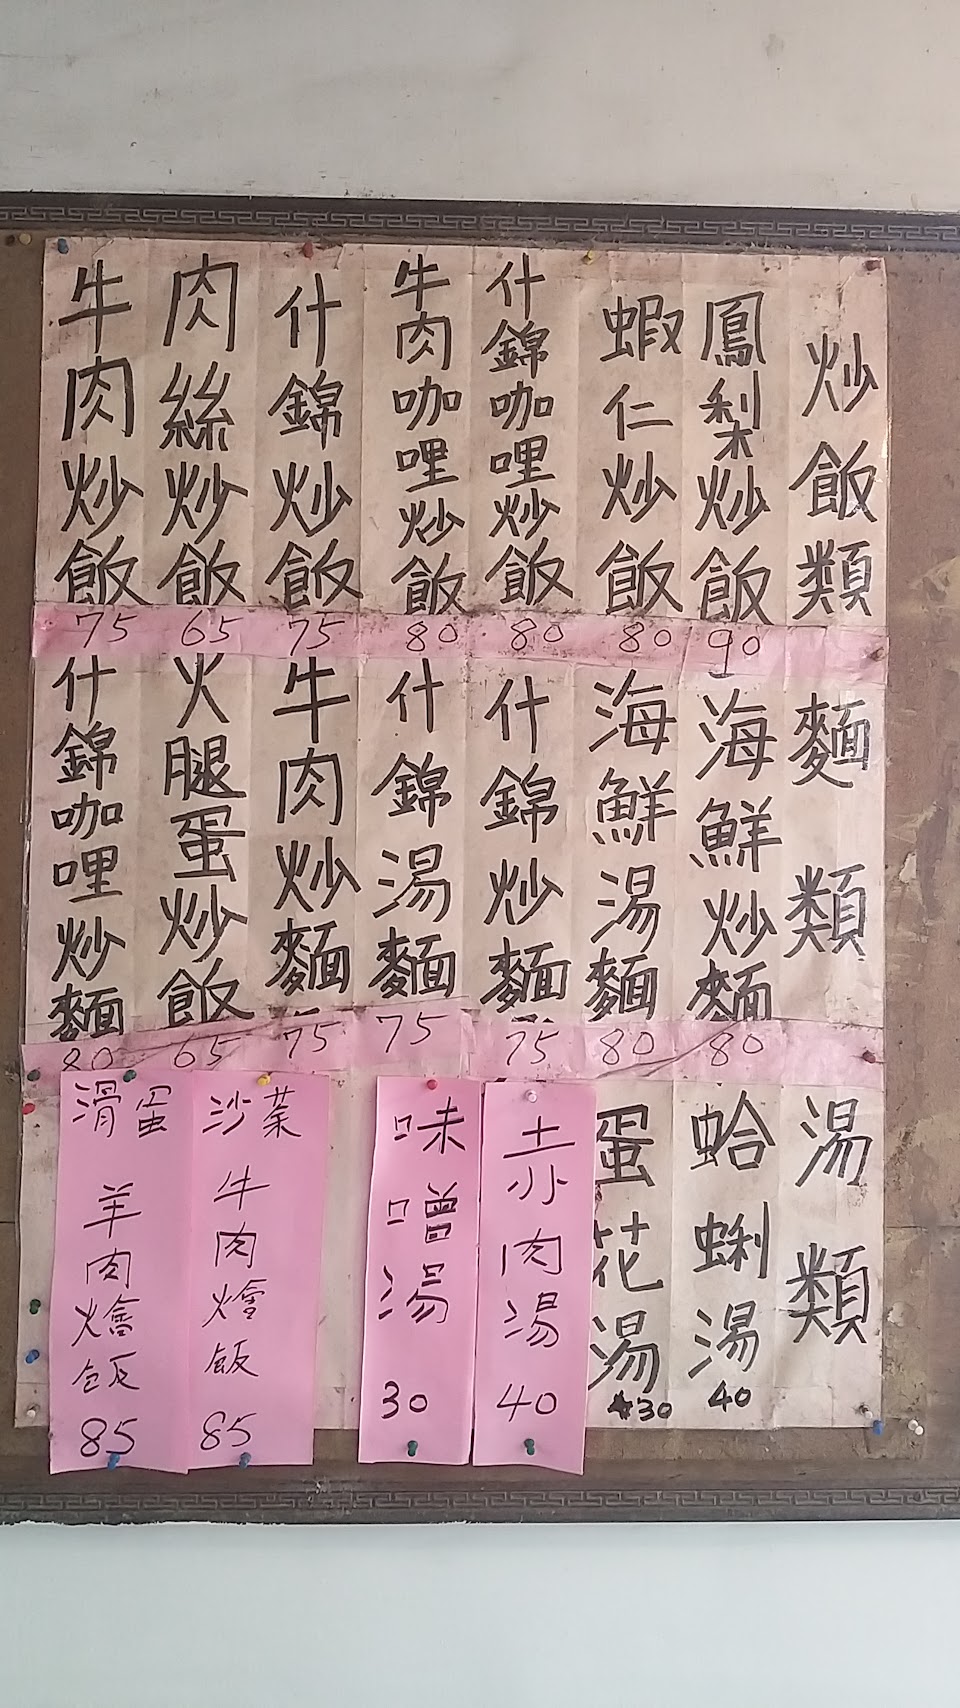 炒飯類
鳳梨炒飯
90
蝦仁炒飯
80
什錦咖哩炒飯
80
牛肉咖哩炒飯
80
什錦炒飯
75
肉絲炒飯
65
牛肉炒飯
75
麵類
海鮮炒麵
80
海鮮湯麵
80
什錦炒麵
75
什錦湯麵
75
牛肉炒麵
75
火腿蛋炒飯
65
什錦咖哩炒麵
80
湯類
蛤蜊湯
40
蛋花湯
30
赤肉湯
40
味噌湯
30
沙茶
牛肉燴飯
85
滑蛋
羊肉燴飯
85